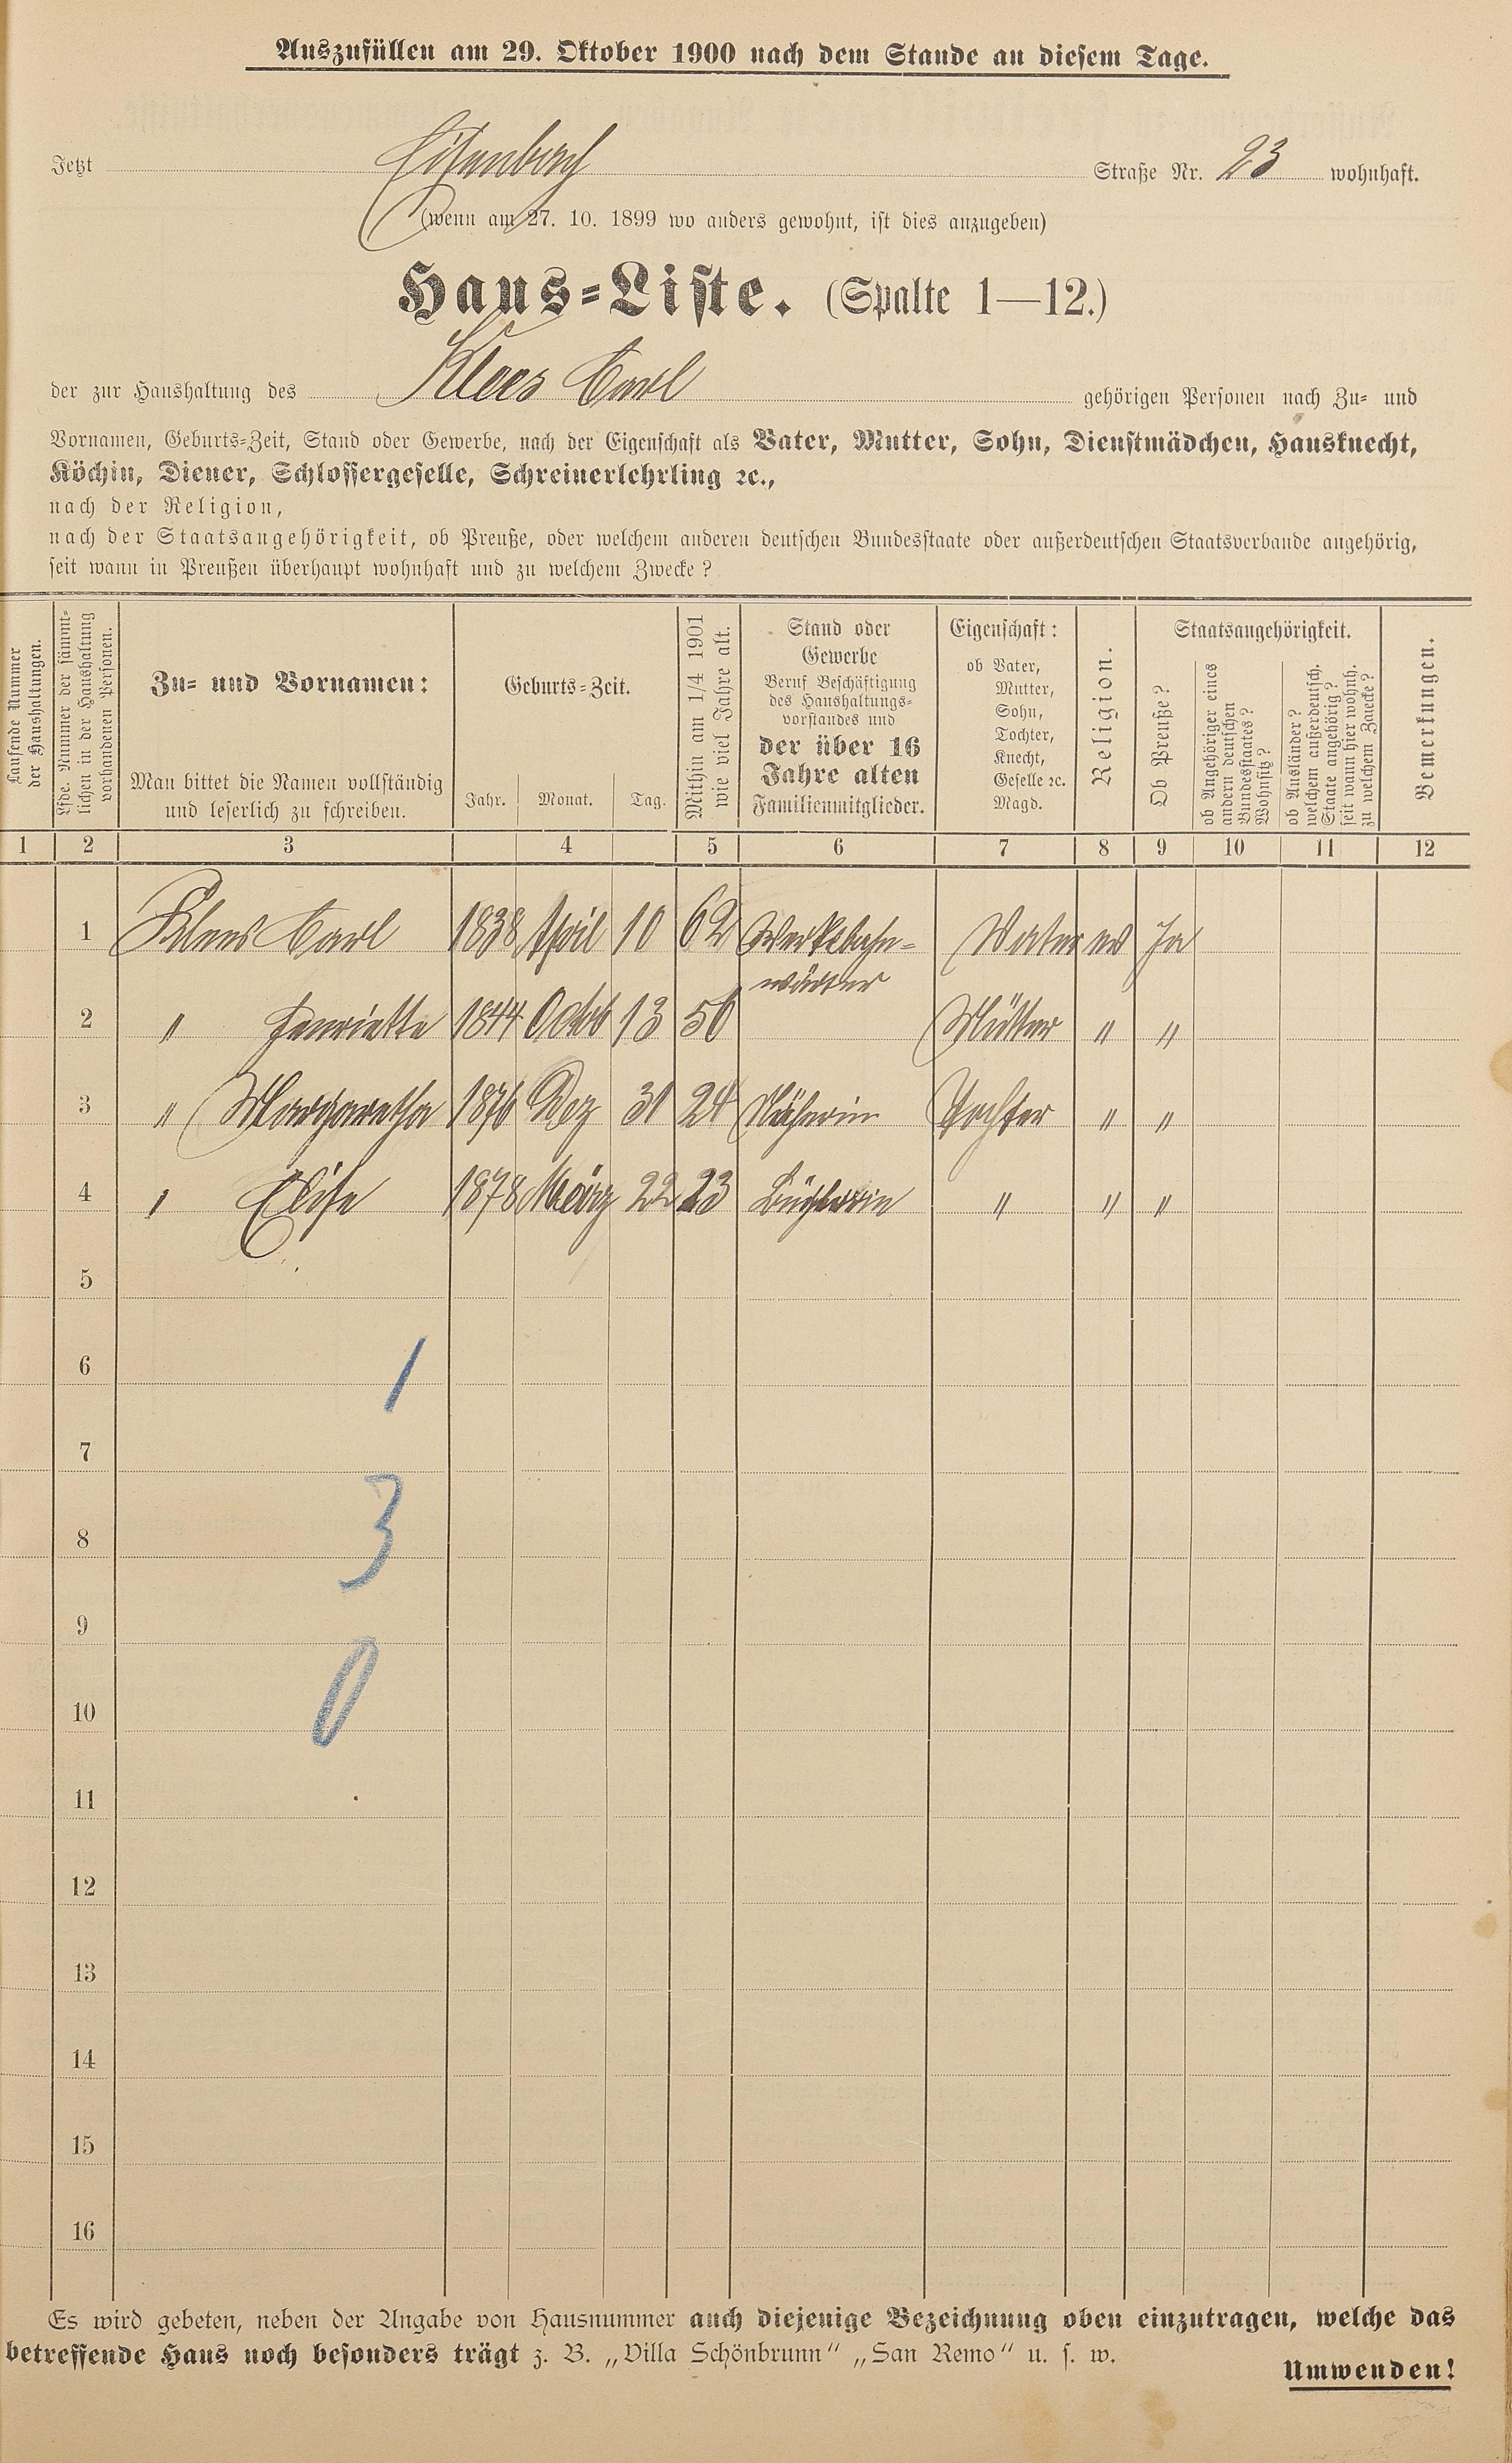 Auszufüllen am 29. Oktober 1900 nach dem Stande an diesem Tage.
Jetzt Straße Nr. 23 wohnhaft.
(wenn am 27. 10. 1899 wo anders gewohnt, ist dies anzugeben)
Haus-Liste. (Spalte 1—12.)
der zur Haushaltung des Klees Carl gehörigen Personen nach Zu- und
Vornamen, Geburts-Zeit, Stand oder Gewerbe, nach der Eigenschaft als Vater, Mutter, Sohn, Dienstmädchen, Hausknecht,
Köchin, Diener, Schlossergeselle, Schreinerlehrling ꝛc.,
nach der Religion,
nach der Staatsangehörigkeit, ob Preuße, oder welchem anderen deutschen Bundesstaate oder außerdeutschen Staatsverbande angehörig,
seit wann in Preußen überhaupt wohnhaft und zu welchem Zwecke?
Laufende Nummer
der Haushaltungen.
Lfde. Nummer der sämmt-
lichen in der Haushaltung
vorhandenen Personen.
Zu- und Vornamen:
Man bittet die Namen vollständig
und leserlich zu schreiben.
Geburts-Zeit.
Jahr. Monat. Tag.
Mithin am 1/4 1901
wie viel Jahre alt.
Stand oder
Gewerbe
Beruf Beschäftigung
des Haushaltungs-
vorstandes und
der über 16
Jahre alten
Familienmitglieder.
Eigenschaft:
ob Vater,
Mutter,
Sohn,
Tochter,
Knecht,
Geselle ꝛc.
Magd.
Religion.
Staatsangehörigkeit.
Ob Preuße?
ob Angehöriger eines
andern deutschen
Bundesstaates?
Wohnsitz?
ob Ausländer?
welchem außerdeutsch.
Staate angehörig?
seit wann hier wohnh.
zu welchem Zwecke?
Bemerkungen.
1 2 3 4 5 6 7 8 9 10 11 12
1 Klees Carl 1838 April 10 62 Vater ev Ja
wärter
2 " Henriette 1844 Octob 13 56 Mutter " "
3 " Margaretha 1876 Dez 31 24 Näherin Tochter " "
4 " Elise 1878 März 22 23 Büglerin " " "
5
6
1
7
8
3
9
10
0
11
12
13
14
15
16
Es wird gebeten, neben der Angabe von Hausnummer auch diejenige Bezeichnung oben einzutragen, welche das
betreffende Haus noch besonders trägt z. B. „Villa Schönbrunn“ „San Remo“ u. s. w.
Umwenden!